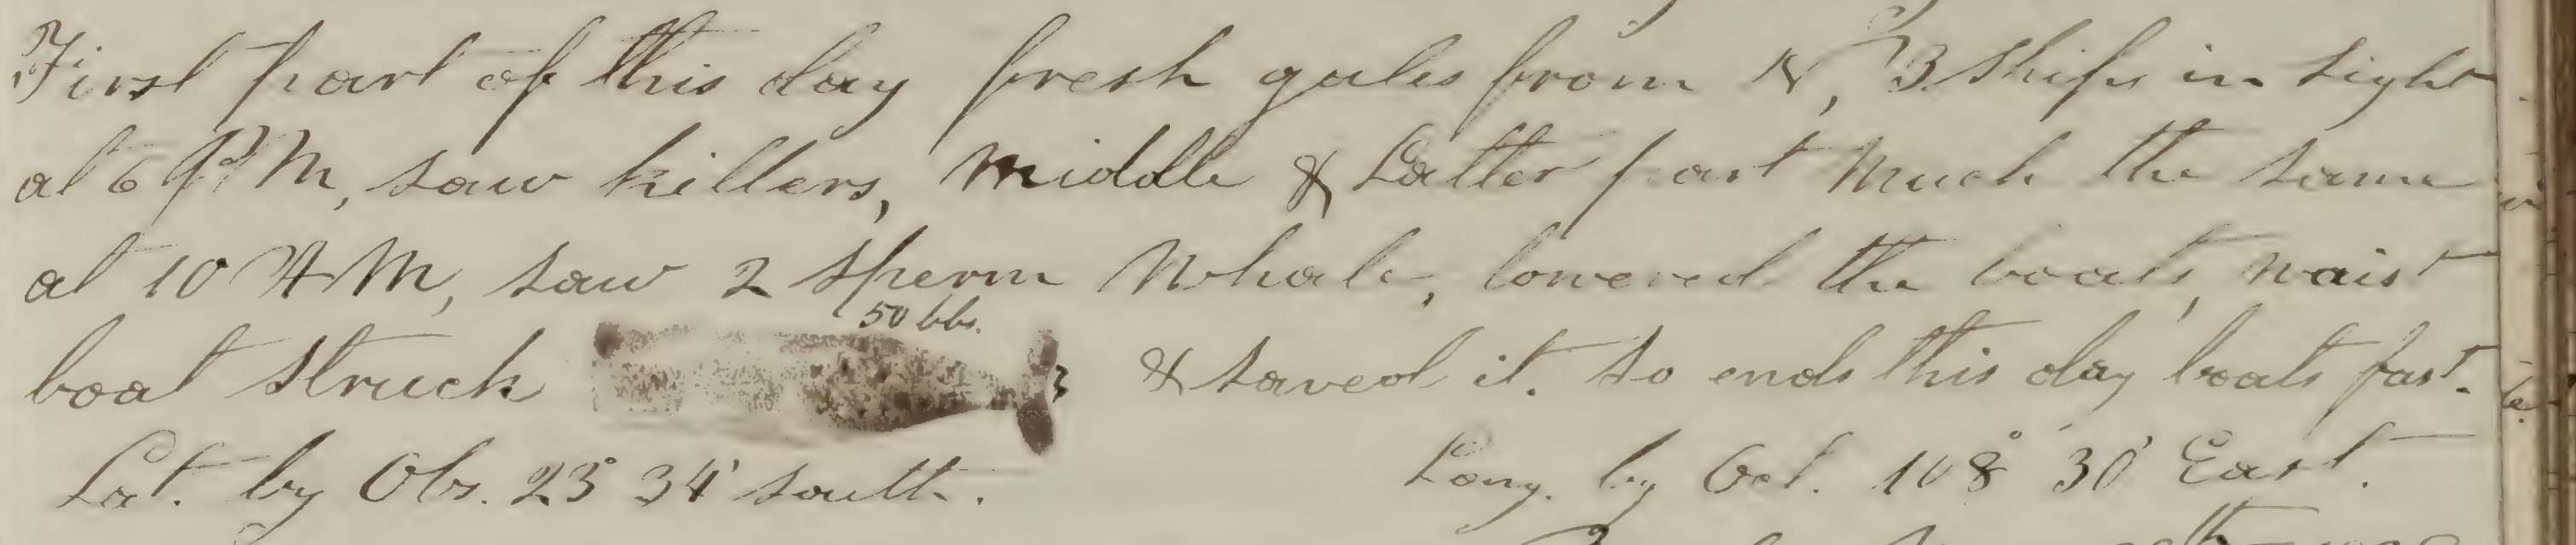 First part of this day fresh gales from N, 3 ships in sight
at 6 P M, saw killers, middle & Latter part Much the same
at 10 A M, saw 2 sperm Whale, lowered the boats, waist
50 bbs.
boat struck & saved it. So ends this day boats fast.
Lat. by Obs. 23° 34' south. Long. by Oct. 108° 30' East.